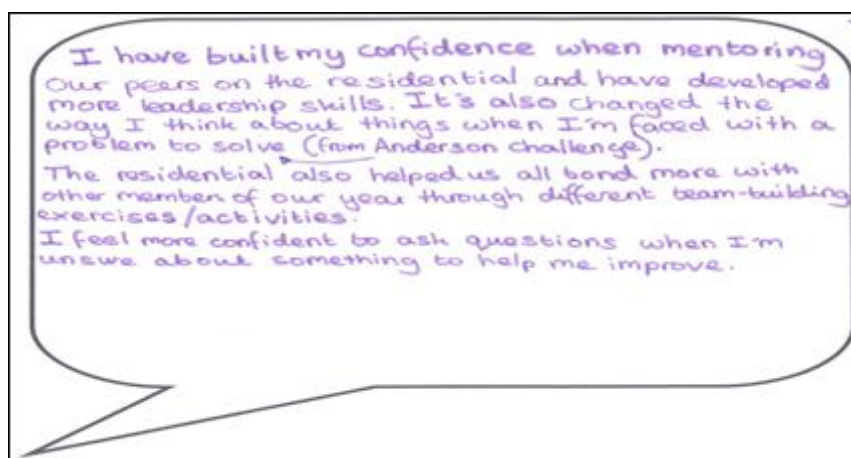 I have built my confidence when mentoring
Our peers on the residential and have developed
more leadership skills. It's also changed the
way I think about things when I'm faced with a
problem to solve (from Anderson challenge).
The residential also helped us all bond more with
other members of our year through different team-building
exercises/activities.
I feel more confident to ask questions when I'm
unsure about something to help me improve.